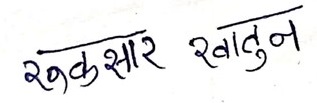 रुकसार खातुन